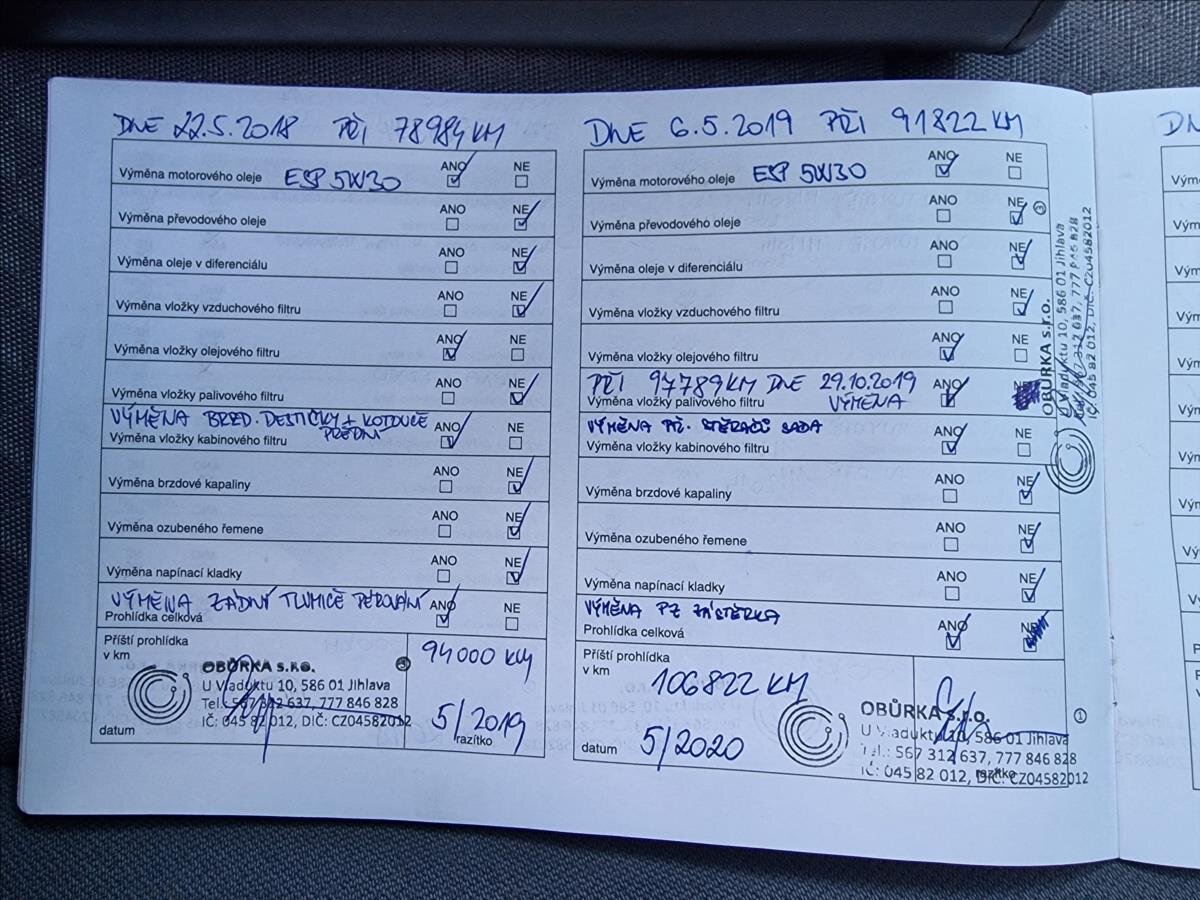 DNE 22.5.2018 PŘI 78984 KM
Výměna motorového oleje ESP 5W30 ANO NE
Výměna převodového oleje ANO NE
Výměna oleje v diferenciálu ANO NE
Výměna vložky vzduchového filtru ANO NE
Výměna vložky olejového filtru ANO NE
Výměna vložky palivového filtru ANO NE
VÝMĚNA BRZD. DESTIČKY + KOTOUČE
PŘEDNÍ
Výměna vložky kabinového filtru ANO NE
Výměna brzdové kapaliny ANO NE
Výměna ozubeného řemene ANO NE
Výměna napínací kladky ANO NE
VÝMĚNA ZADNÍ TLUMIČE PÉROVÁNÍ
Prohlídka celková ANO NE
Příští prohlídka
v km 94000 KM
OBŮRKA s.r.o. 3
U Viaduktu 10, 586 01 Jihlava
Tel.: 567 312 637, 777 846 828
IČ: 045 82 012, DIČ: CZ04582012
datum 5/2019
razítko
DNE 6.5.2019 PŘI 91822 KM
Výměna motorového oleje ESP 5W30 ANO NE
Výměna převodového oleje ANO NE
Výměna oleje v diferenciálu ANO NE
Výměna vložky vzduchového filtru ANO NE
Výměna vložky olejového filtru ANO NE
PŘI 97789 KM DNE 29.10.2019
Výměna vložky palivového filtru VÝMĚNA ANO
VÝMĚNA PŘ. STĚRAČŮ SADA
Výměna vložky kabinového filtru ANO NE
Výměna brzdové kapaliny ANO NE
Výměna ozubeného řemene ANO NE
Výměna napínací kladky ANO NE
VÝMĚNA PZ ZÁSTĚRKA
Prohlídka celková ANO
Příští prohlídka
v km 106822 KM
OBŮRKA s.r.o. 1
U Viaduktu 10, 586 01 Jihlava
Tel.: 567 312 637, 777 846 828
IČ: 045 82 012, DIČ: CZ04582012
datum 5/2020
razítko
OBŮRKA s.r.o. 3
U Viaduktu 10, 586 01 Jihlava
637, 777 846 828
IČ: 045 82 012, DIČ: CZ04582012